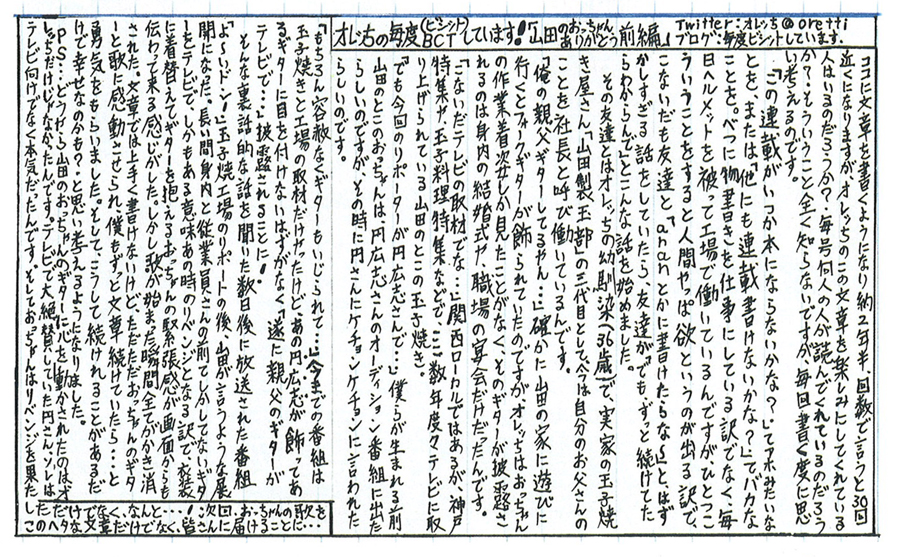 オレッちの毎度BCTしています!「山田のおっちゃんありがとう前編」
(ビシット)
Twitter:オレッち@oretti
ブログ:毎度ビシットしています.
ココに文章を書くようになり約2年半、回数で言うと30回
近くになりますが、オレッちのこの文章を楽しみにしてくれている
人はいるのだろうか?毎号何人の人が読んでくれているのだろう
か?そういうこと全く知らないですが、毎回書く度に思
い考えるのです。
「この連載がいつか本にならないかな?」てアホみたいな
ことを、または「他にも連載書けないかな?」てバカな
ことを。べつに物書きを仕事にしている訳でなく、毎
日ヘルメットを被って工場で働いているんですがひとつこ
ういうことをすると人間やっぱ欲というのが出る訳で、
こないだも友達と「ananとかに書けたらな〜」とはず
かしすぎる話をしていたら、友達が「でもずっと続けてた
らわからんで」とこんな話を始めました。
その友達とはオレッちの幼馴染(36歳)で、実家の玉子焼
き屋さん「山田製玉部」の二代目として、今は自分のお父さんの
ことを社長と呼び働いているんです。
「俺の親父ギターしてるやん…」確かに山田の家に遊びに
行くとフォークギターが飾られていたのですが、オレッちはおっちゃん
の作業着姿しか見たことがなく、そのギターが披露さ
れるのは身内の結婚式や、職場の宴会だけだったんです。
「こないだテレビの取材でな…」関西ローカルではあるが、神戸
特集や玉子料理特集などで、ここ数年度々テレビに取
り上げられている山田のとこの玉子焼き。
「でも今回のリポーターが円広志さんで…」僕らが生まれる前
山田のとこのおっちゃんは円広志さんのオーディション番組に出た
らしいのですが、その時に円さんにケチョンケチョンに言われた
らしいのです。
「もちろん容赦なくギターもいじられて…」今までの番組は
玉子焼きと工場の取材だけだったけど、あの円広志が飾ってあ
るギターに目を付けないはずがなく、「遂に親父のギターが
テレビで…」披露されることに!
そんな裏話的な話を聞いた数日後に放送された番組
「よ〜いドン!」玉子焼工場のリポートの後、山田が言うような展
開になった。長い間身内と従業員さんの前でしかしてないギタ
ーをテレビで、しかもある意味あの時のリベンジとなる訳で、衣装
に着替えてギターを抱えるおっちゃんの緊張感が画面からも
伝わって来る感じがした。しかし歌が始まった瞬間全てがかき消
された。文章では上手く書けないけど、ただただおっちゃんのギタ
ーと歌に感動させられ僕もずっと文章続けていたら…と
勇気をもらいました。そして、こうして続けれることがあるだ
けで幸せなのかも?と思い考えるようになりはじめました。
PS…どうやら山田のおっちゃんのギターに心を動かされたのはオ
レッちだけじゃなかったんです。テレビで大絶賛していた円さん、ソレは
テレビ向けでなく本気だったんです。そしておっちゃんはリベンジを果た